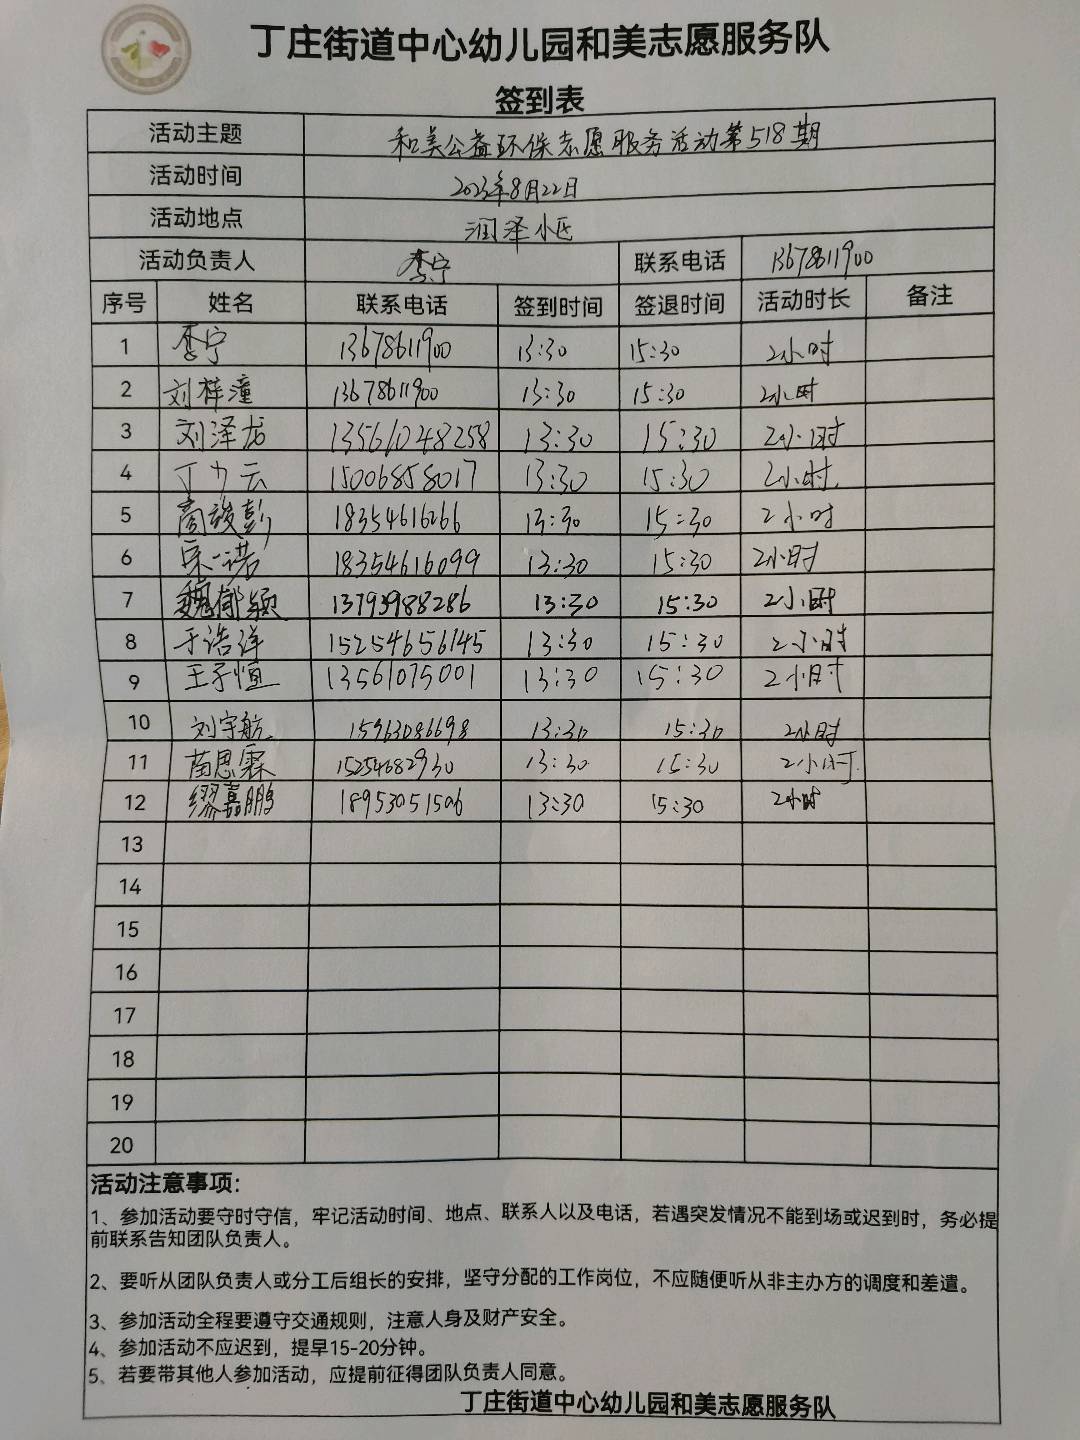 丁庄街道中心幼儿园和美志愿服务队
签到表
活动主题 和美公益环保志愿服务活动第518期
活动时间 2023年8月22日
活动地点 润泽小区
活动负责人 李宁 联系电话 13678611900
序号 姓名 联系电话 签到时间 签退时间 活动时长 备注
1 李宁 13678611900 13:30 15:30 2小时
2 刘梓潼 13678611900 13:30 15:30 2小时
3 刘泽龙 13561048258 13:30 15:30 2小时
4 丁力云 15006858017 13:30 15:30 2小时
5 高竣彭 18354616266 13:30 15:30 2小时
6 宋一诺 18354616099 13:30 15:30 2小时
7 魏郁颖 13793988286 13:30 15:30 2小时
8 于浩洋 15254656145 13:30 15:30 2小时
9 王子恒 13561075001 13:30 15:30 2小时
10 刘宇航 15963086698 13:30 15:30 2小时
11 苗思霖 15254682930 13:30 15:30 2小时
12 缪嘉鹏 18953051506 13:30 15:30 2小时
13
14
15
16
17
18
19
20
活动注意事项：
1、参加活动要守时守信，牢记活动时间、地点、联系人以及电话，若遇突发情况不能到场或迟到时，务必提
前联系告知团队负责人。
2、要听从团队负责人或分工后组长的安排，坚守分配的工作岗位，不应随便听从非主办方的调度和差遣。
3、参加活动全程要遵守交通规则，注意人身及财产安全。
4、参加活动不应迟到，提早15-20分钟。
5、若要带其他人参加活动，应提前征得团队负责人同意。
丁庄街道中心幼儿园和美志愿服务队